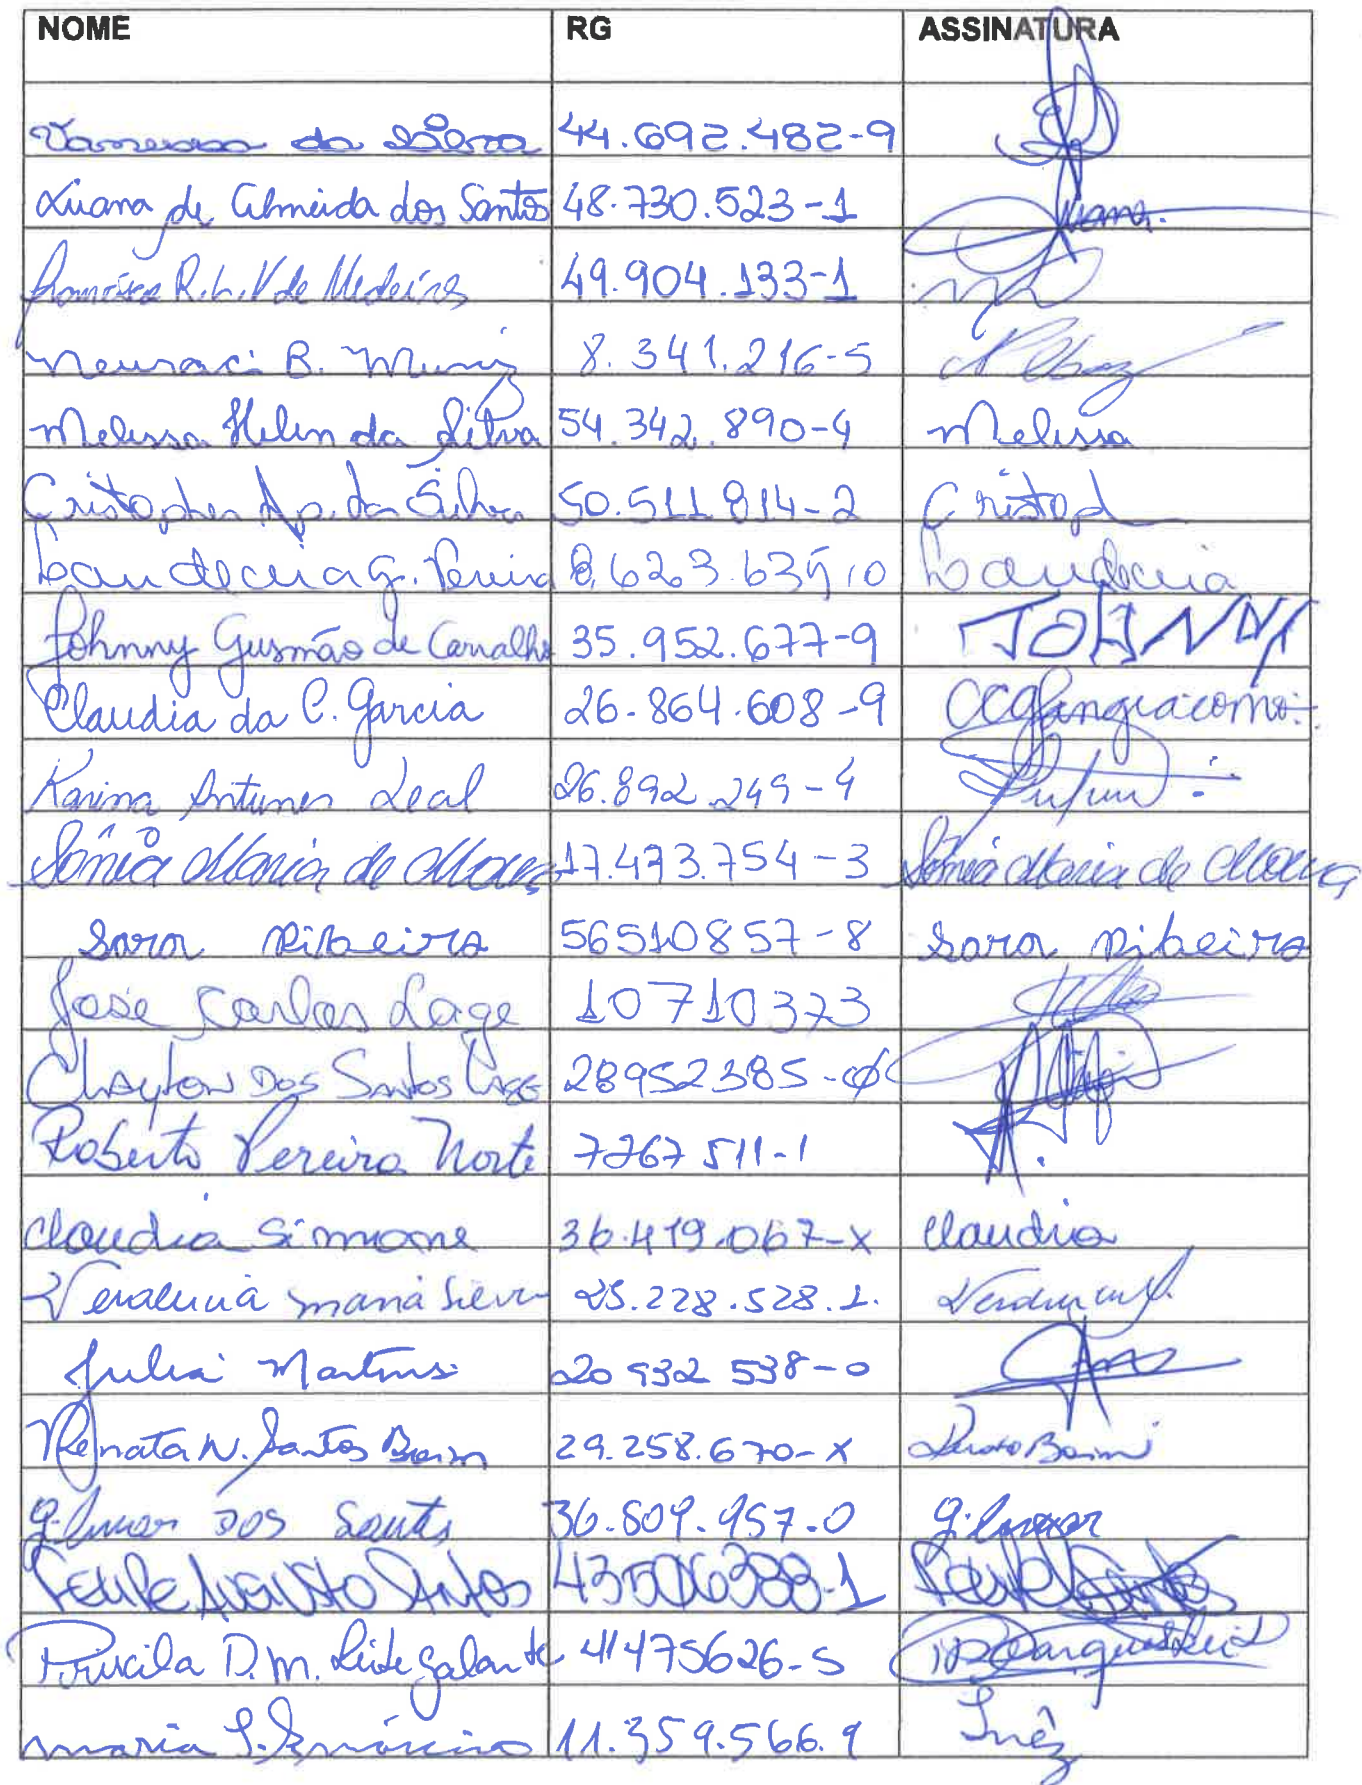 NOME RG ASSINATURA
Vanessa da Silva 44.692.482-9
Luana de Almeida dos Santos 48.730.523-1 Luana.
Francisca R. L. V de Medeiros 49.904.133-1
Neuraci B. Muniz 8.341.216-5
Melissa Helen da Silva 54.342.890-4 Melissa
Cristopher Ap. da Silva 50.511.814-2 Cristoph
Laudeceia G. Pereira Laudeceia
Johnny Gusmão de Carvalho 35.952.677-9 JOHNNY
Claudia da C. Garcia 26.864.608-9 CCGangiacomo.
Karina Antunes Leal 26.892.249-4
Sônia Maria de Moura 17.473.754-3 Sônia Maria de Moura
Sara Ribeiro 56510857-8 Sara Ribeiro
Jose Carlos Lage 10710373
Clayton Dos Santos Lage 28952385-0
Roberto Pereira Norte 7267511-1
Claudia Simone 36.419.067-X Claudia
Veralucia Maria Silva 25.228.528.1.
Julia Martins 20 932 538-0
Renata N. Santos Bonini 29.258.670-X
Gilmar DOS Santos 36.809.957-0 Gilmar
Felipe Augusto Santos 43506388-1 Felipe Santos
Priscila D. M. Leite Galante 41475626-5
Maria I. 11.359.566.9 Inêz